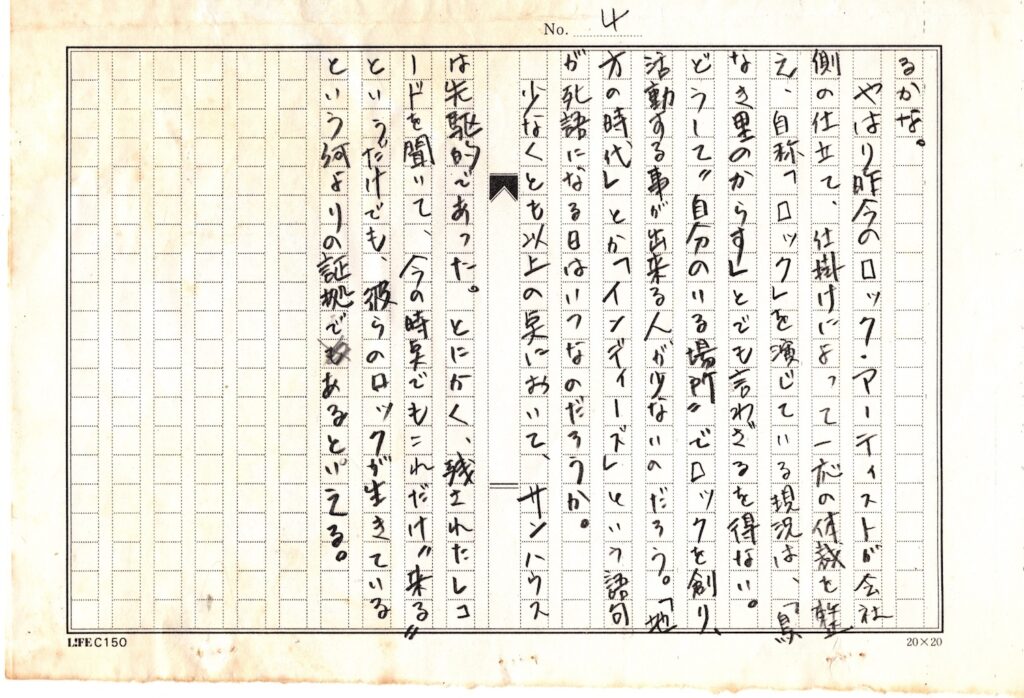 No. 4
るかな。
やはり昨今のロック・アーティストが会社
側の仕立て、仕掛けによって一応の体裁を整
え、自称「ロック」を演じている現況は、「鳥
なき里のからす」とでも言わざるを得ない。
どうして〝自分のいる場所〟でロックを創り、
活動する事が出来る人が少ないのだろう。「地
方の時代」とか「インディーズ」という語句
が死語になる日はいつなのだろうか。
少なくとも以上の点において、サンハウス
は先駆的であった。とにかく、残されたレコ
ードを聞いて、今の時点でもこれだけ〝来る〟
というだけでも、彼らのロックが生きている
という何よりの証拠であるといえる。
LIFE C150
20×20